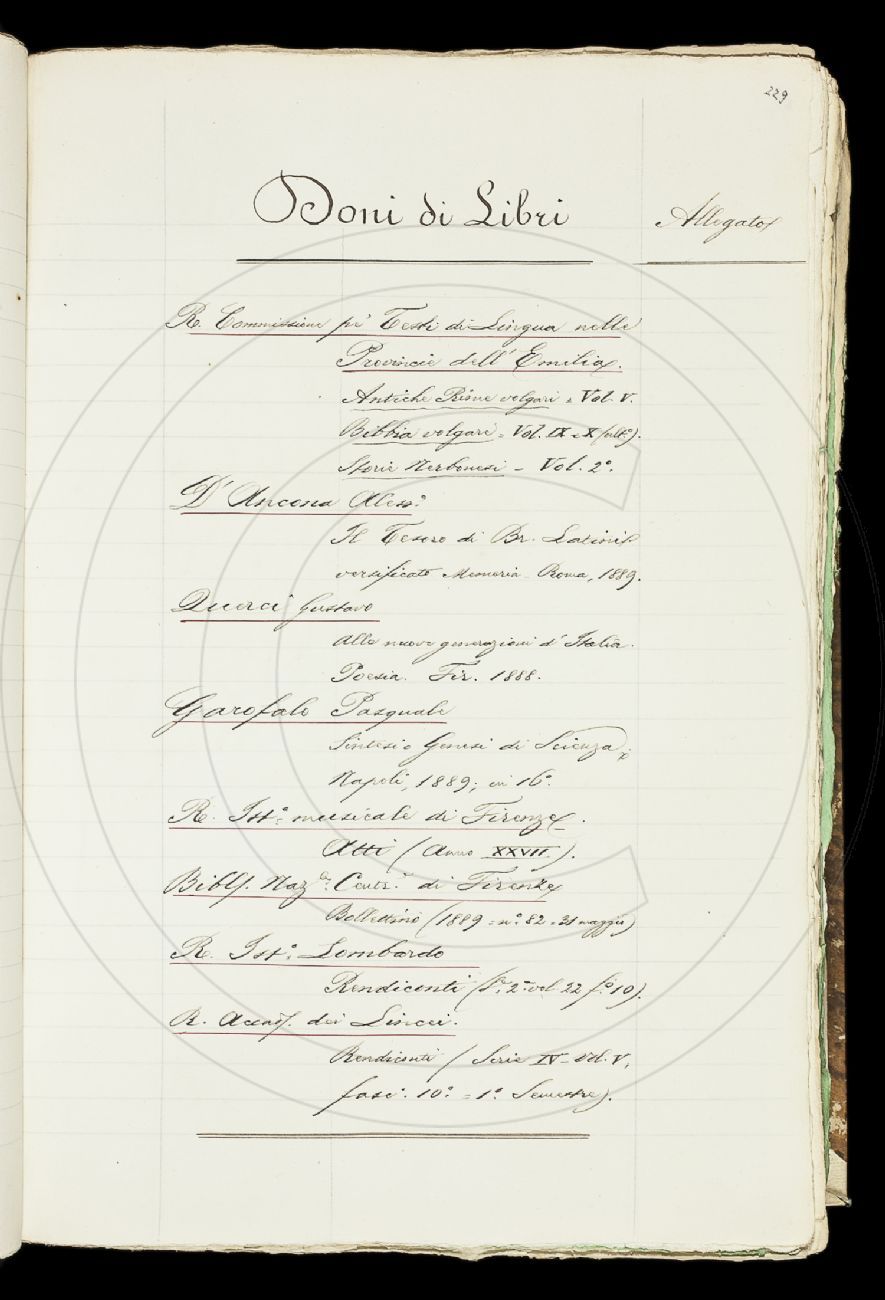 229
Doni di Libri
Allegato
R. Commissione pi' Testi di Lingua nelle
Provincie dell' Emilia.
Antiche Rime volgari = Vol. V.
Bibbia volgari = Vol. IX e X (ult.º).
Storie Nerbonesi - Vol. 2º.
D'Ancona Aless.º
Il Tesoro di Br. Latini
versificato Memoria - Roma, 1889.
Querci Gustavo
Alle nuove generazioni d' Italia.
Poesia. Fir. 1888.
Garofalo Pasquale
Sintesi o Genesi di Scienza;
Napoli, 1889; in 16º.
R. Ist.º musicale di Firenze.
Atti (Anno XXVII.).
Bibl. Naz.le Centr.le di Firenze
Bollettino (1889 = nº. 82 = 31 maggio)
R. Ist.º Lombardo
Rendiconti (S. 2ª vol. 22 f.º 10).
R. Accad. dei Lincei.
Rendiconti (Serie IV - Vol. V,
fasc. 10º. = 1º. Semestre).